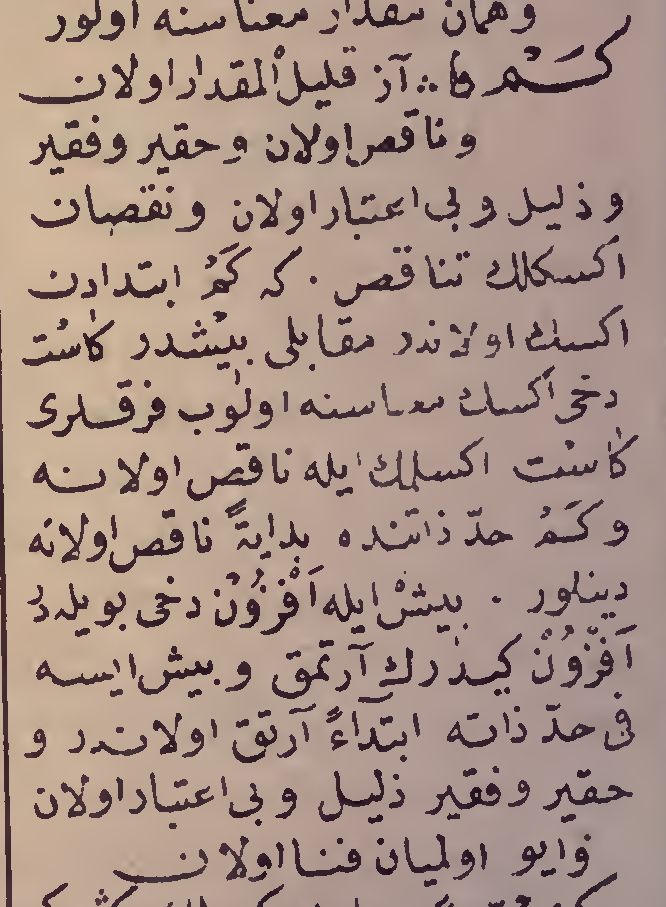 وهمان مقدار معناسنه اولور
كَمْ فا ∴ آز قليل المقدار اولان
و ناقص اولان و حقير و فقير
و ذليل و بى اعتبار اولان و نقصان
اكسكلك تناقص . كه كَمْ ابتدادن
اكسك اولاندر مقابلى بيشدر كاسْت
دخى اكسك معناسنه اولوب فرقلرى
كاسْت اكسلمك ايله ناقص اولانه
و كَمْ حدّ ذاتنده بدايةً ناقص اولانه
دينلور . بيشْ ايله اَفْزُونْ دخى بويله در
اَفْزُونْ كيدرك آرتمق و بيش ايسه
فى حدّ ذاته ابتداءً آرتق اولاندر و
حقير و فقير ذليل و بى اعتبار اولان
و ايو اولميان فنا اولان